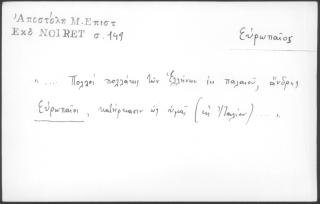 Ἀποστόλη Μ. Ἐπιστ
Ἐκδ NOIRET σ. 149
Εὐρωπαῖος
".... Πολλοὶ πολλάκις τῶν Ἑλλήνων ἐκ παλαιοῦ, ἄνδρες
Εὐρωπαῖοι, κατῴκησαν ὡς ὑμᾶς (εἰς Ἰταλίαν) .... "